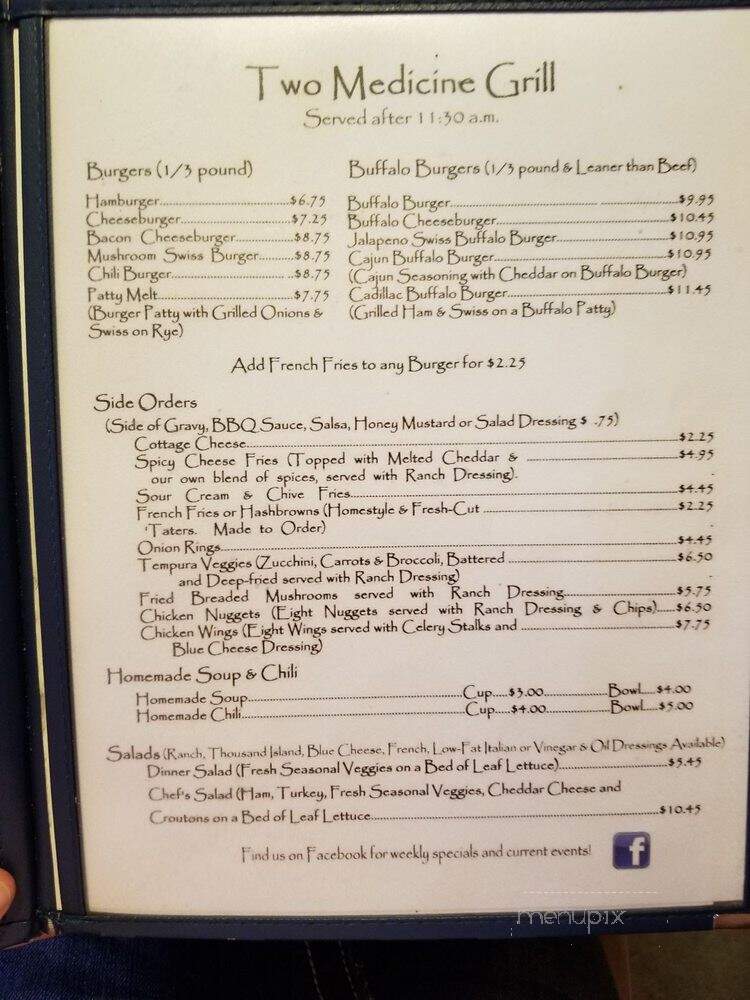 Two Medicine Grill
Served after 11:30 a.m.
Burgers (1/3 pound)
Hamburger...............................$6.75
Cheeseburger..........................$7.25
Bacon Cheeseburger..............$8.75
Mushroom Swiss Burger.........$8.75
Chili Burger............................ ..$8.75
Patty Melt.................................$7.75
(Burger Patty with Grilled Onions &
Swiss on Rye)
Buffalo Burgers (1/3 pound & Leaner than Beef)
Buffalo Burger.................................... ...................$9.95
Buffalo Cheeseburger............................................$10.45
Jalapeno Swiss Buffalo Burger............................$10.95
Cajun Buffalo Burger...........................................$10.95
(Cajun Seasoning with Cheddar on Buffalo Burger)
Cadillac Buffalo Burger........................................$11.45
(Grilled Ham & Swiss on a Buffalo Patty)
Add French Fries to any Burger for $2.25
Side Orders
(Side of Gravy, BBQ Sauce, Salsa, Honey Mustard or Salad Dressing $ .75)
Cottage Cheese..............................................................$2.25
Spicy Cheese Fries (Topped with Melted Cheddar & ....................................$4.95
our own blend of spices, served with Ranch Dressing).
Sour Cream & Chive Fries..............................................................$4.45
French Fries or Hashbrowns (Homestyle & Fresh-Cut ..........................................$2.25
'Taters. Made to Order)
Onion Rings..............................................................$4.45
Tempura Veggies (Zucchini, Carrots & Broccoli, Battered ....................................$6.50
and Deep-fried served with Ranch Dressing)
Fried Breaded Mushrooms served with Ranch Dressing........................$5.75
Chicken Nuggets (Eight Nuggets served with Ranch Dressing & Chips).....$6.50
Chicken Wings (Eight Wings served with Celery Stalks and ..................................$7.75
Blue Cheese Dressing)
Homemade Soup & Chili
Homemade Soup..................................................Cup.....$3.00...............Bowl....$4.00
Homemade Chili..................................................Cup.....$4.00...............Bowl....$5.00
Salads (Ranch, Thousand Island, Blue Cheese, French, Low-Fat Italian or Vinegar & Oil Dressings Available)
Dinner Salad (Fresh Seasonal Veggies on a Bed of Leaf Lettuce)........................$5.45
Chef's Salad (Ham, Turkey, Fresh Seasonal Veggies, Cheddar Cheese and
Croutons on a Bed of Leaf Lettuce..............................................................$10.45
Find us on Facebook for weekly specials and current events!
f
menupix